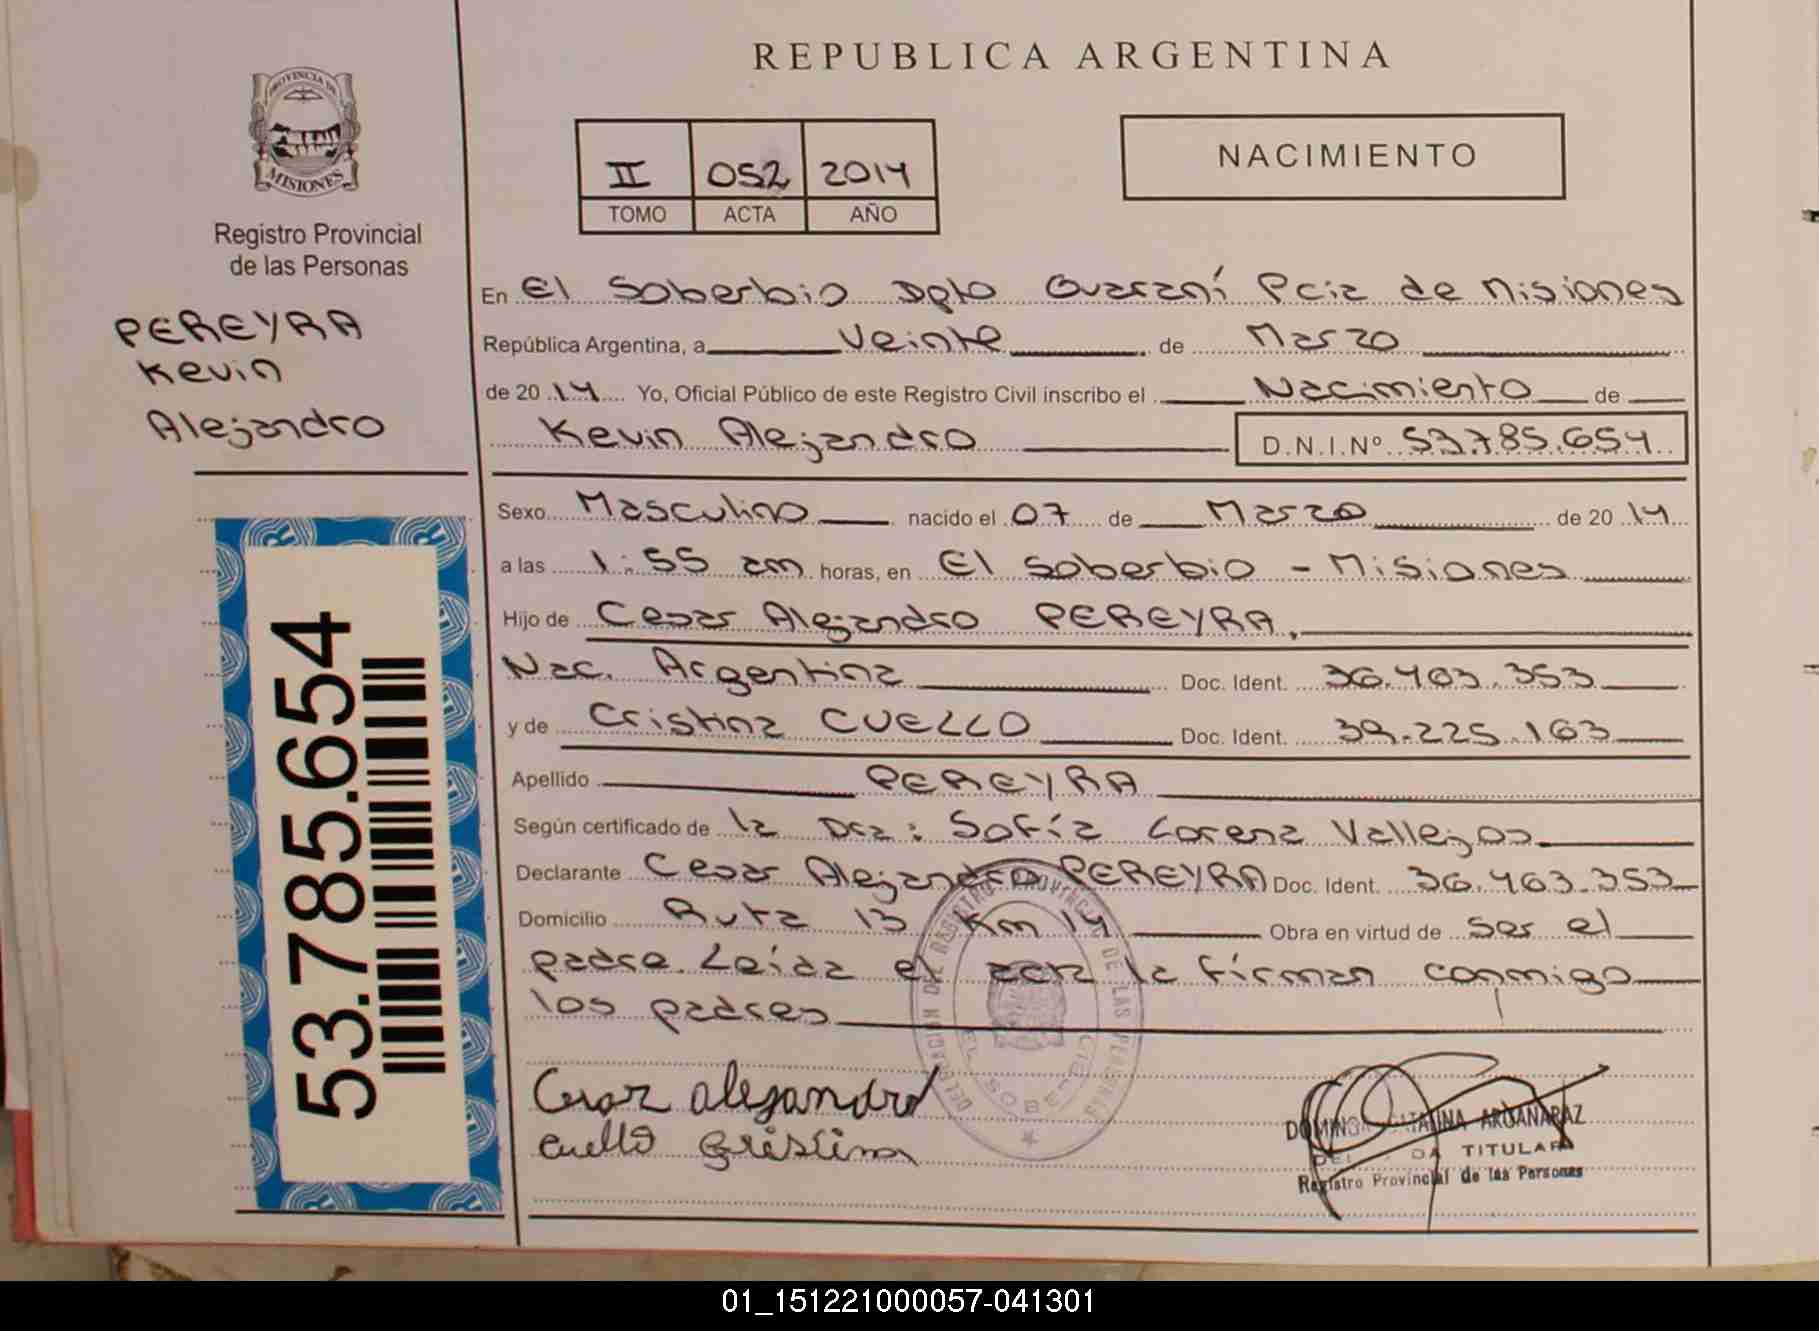 REPUBLICA ARGENTINA
PROVINCIA DE
MISIONES
Registro Provincial
de las Personas
II 052 2014
TOMO ACTA AÑO
NACIMIENTO
PEREYRA
Kevin
Alejandro
53.785.654
En El Soberbio Dpto Guaraní Pcia de Misiones
República Argentina, a Veinte de Marzo
de 2014 Yo, Oficial Público de este Registro Civil inscribo el Nacimiento de
Kevin Alejandro D.N.I.Nº 53.785.654
Sexo Masculino nacido el 07 de Marzo de 2014
a las 1:55 am horas, en El Soberbio - Misiones
Hijo de Cesar Alejandro PEREYRA.
Nac. Argentina Doc. Ident. 36.463.353
y de Cristina CUELLO Doc. Ident. 39.225.163
Apellido PEREYRA
Según certificado de la Dra: Sofía Lorena Vallejos
Declarante Cesar Alejandro PEREYRA Doc. Ident. 36.463.353
Domicilio Ruta 13 Km 14 Obra en virtud de ser el
padre. Leída el acta la firman conmigo
los padres
Cesar alejandro
Cuello Cristina
DELEGACION DE REGISTRO PROVINCIAL DE LAS PERSONAS
EL SOBERBIO
CATALINA ARGAÑARAZ
TITULAR
Registro Provincial de las Personas
01_151221000057-041301